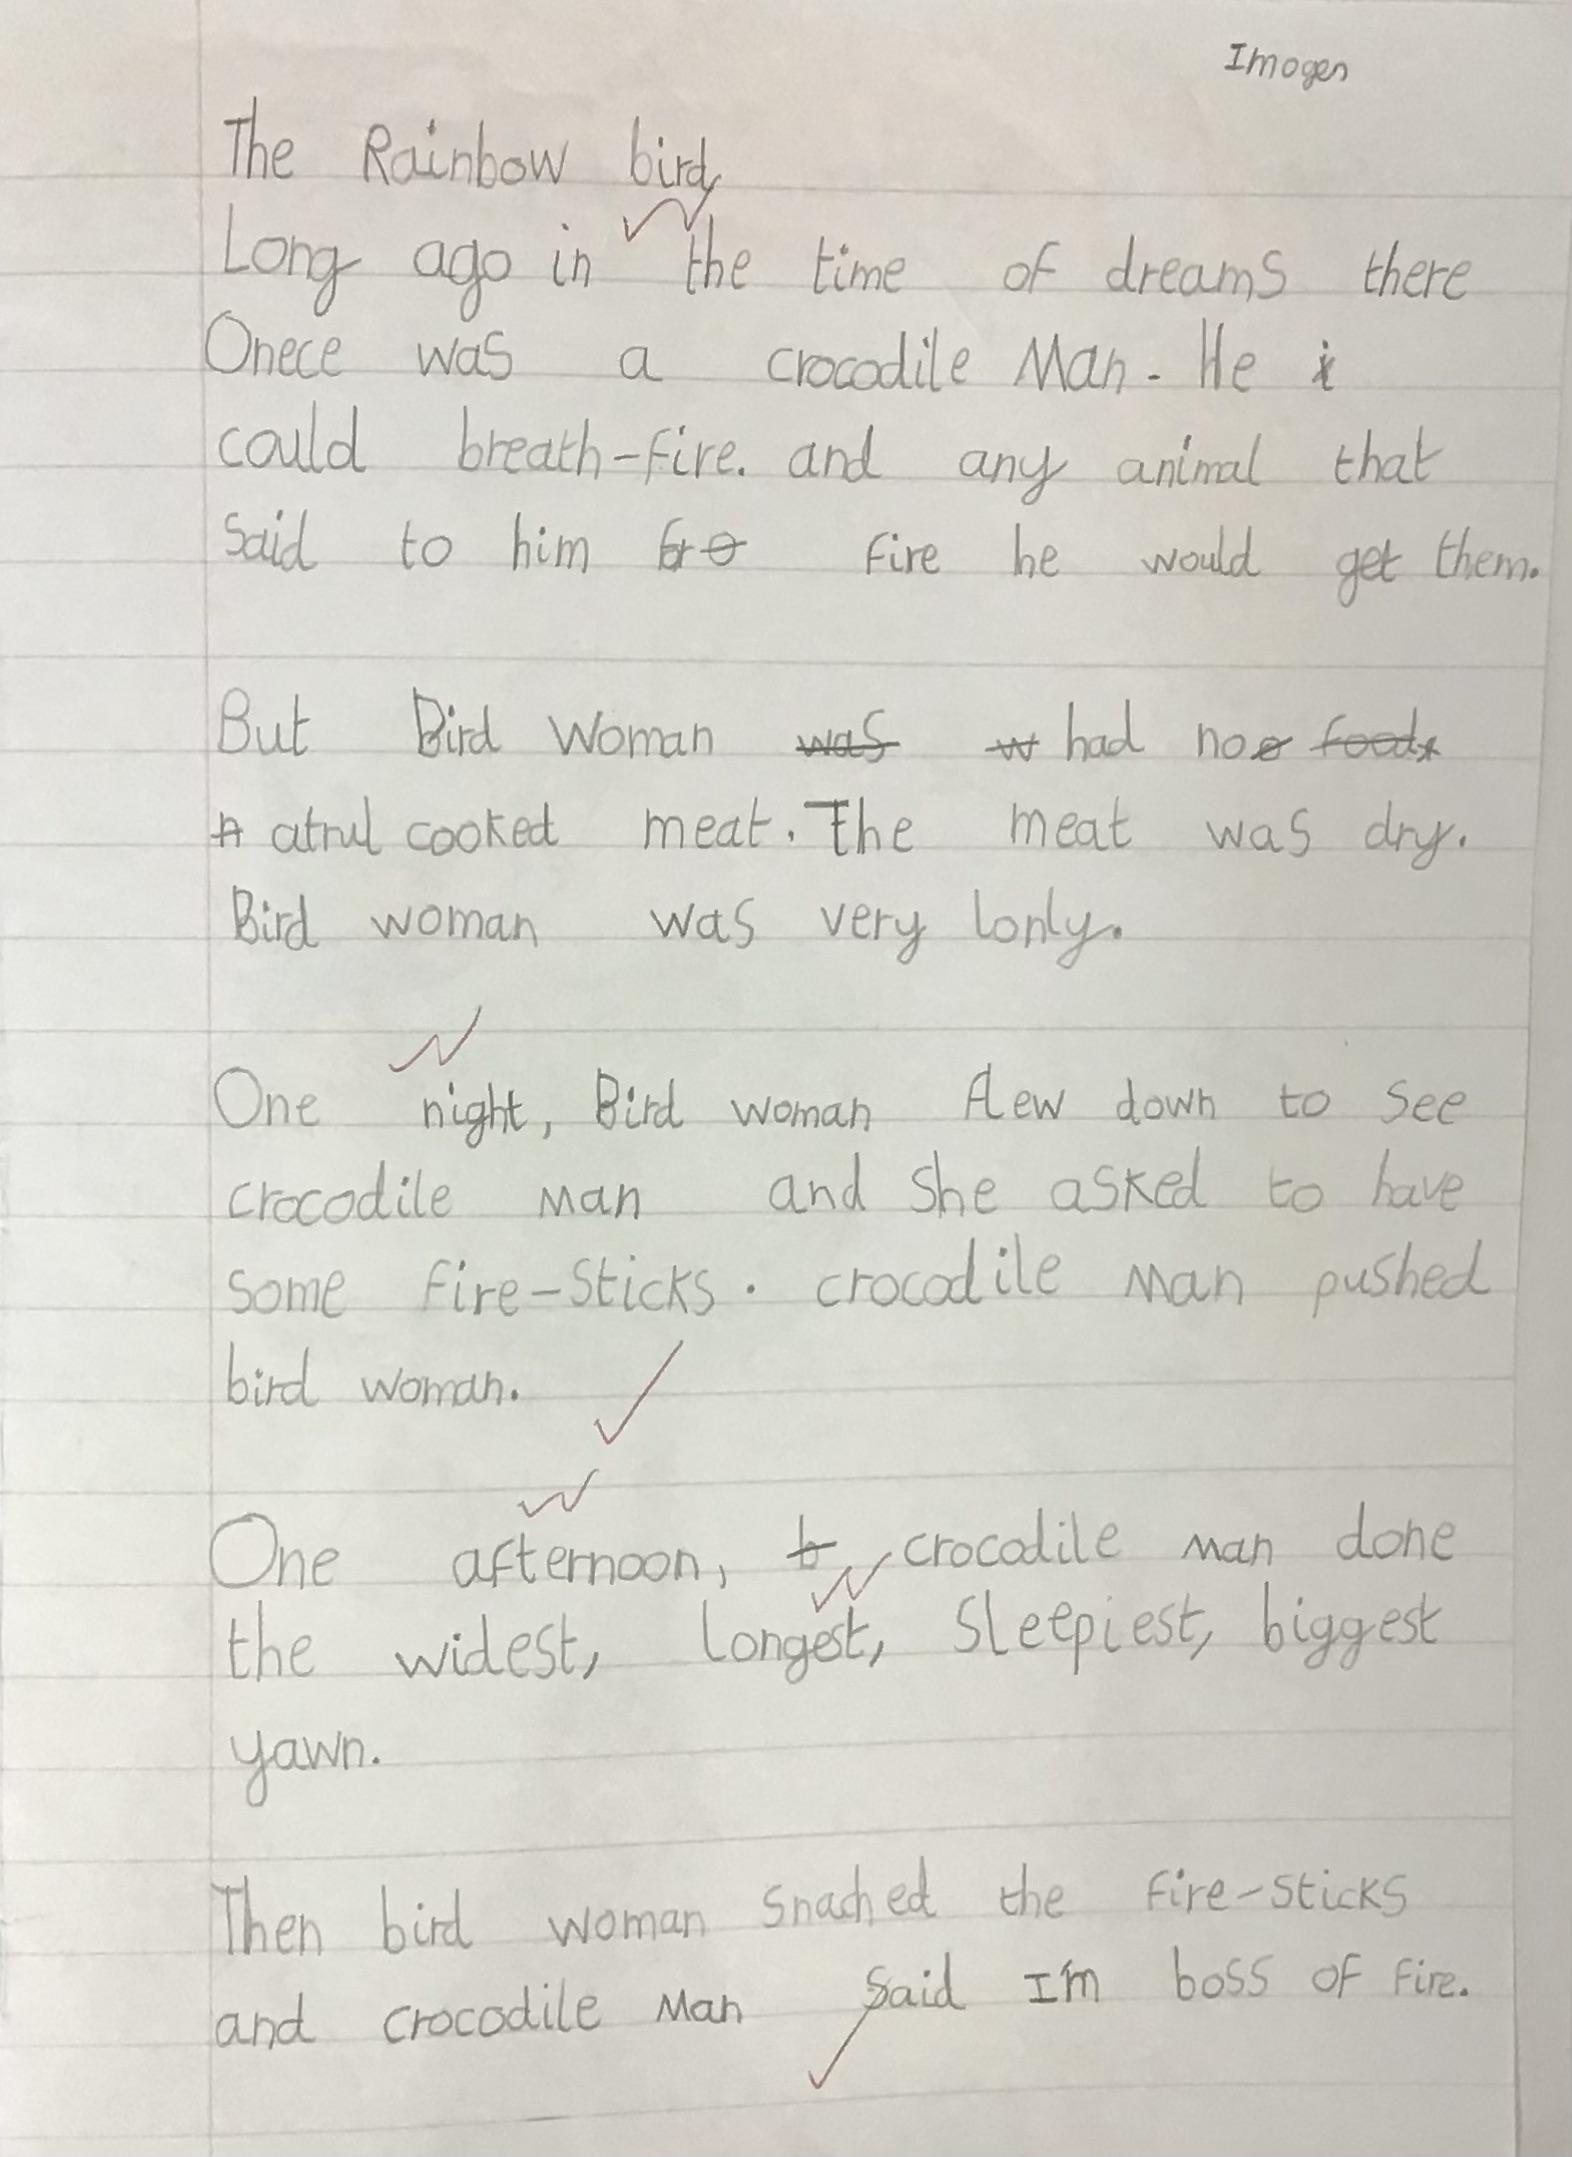 Imogen
The Rainbow bird
Long ago in the time of dreams there
Onece was a crocodile Man. He
could breath-fire. and any animal that
said to him fire he would get them.
But Bird woman was w had no food
atrul cooked meat. The meat was dry.
Bird woman was very lonly.
One night, Bird woman flew down to see
crocodile man and she asked to have
some fire-sticks. crocodile man pushed
bird woman.
One afternoon, b crocodile man done
the widest, longest, sleepiest, biggest
yawn.
Then bird woman snached the fire-sticks
and crocodile man said I'm boss of fire.